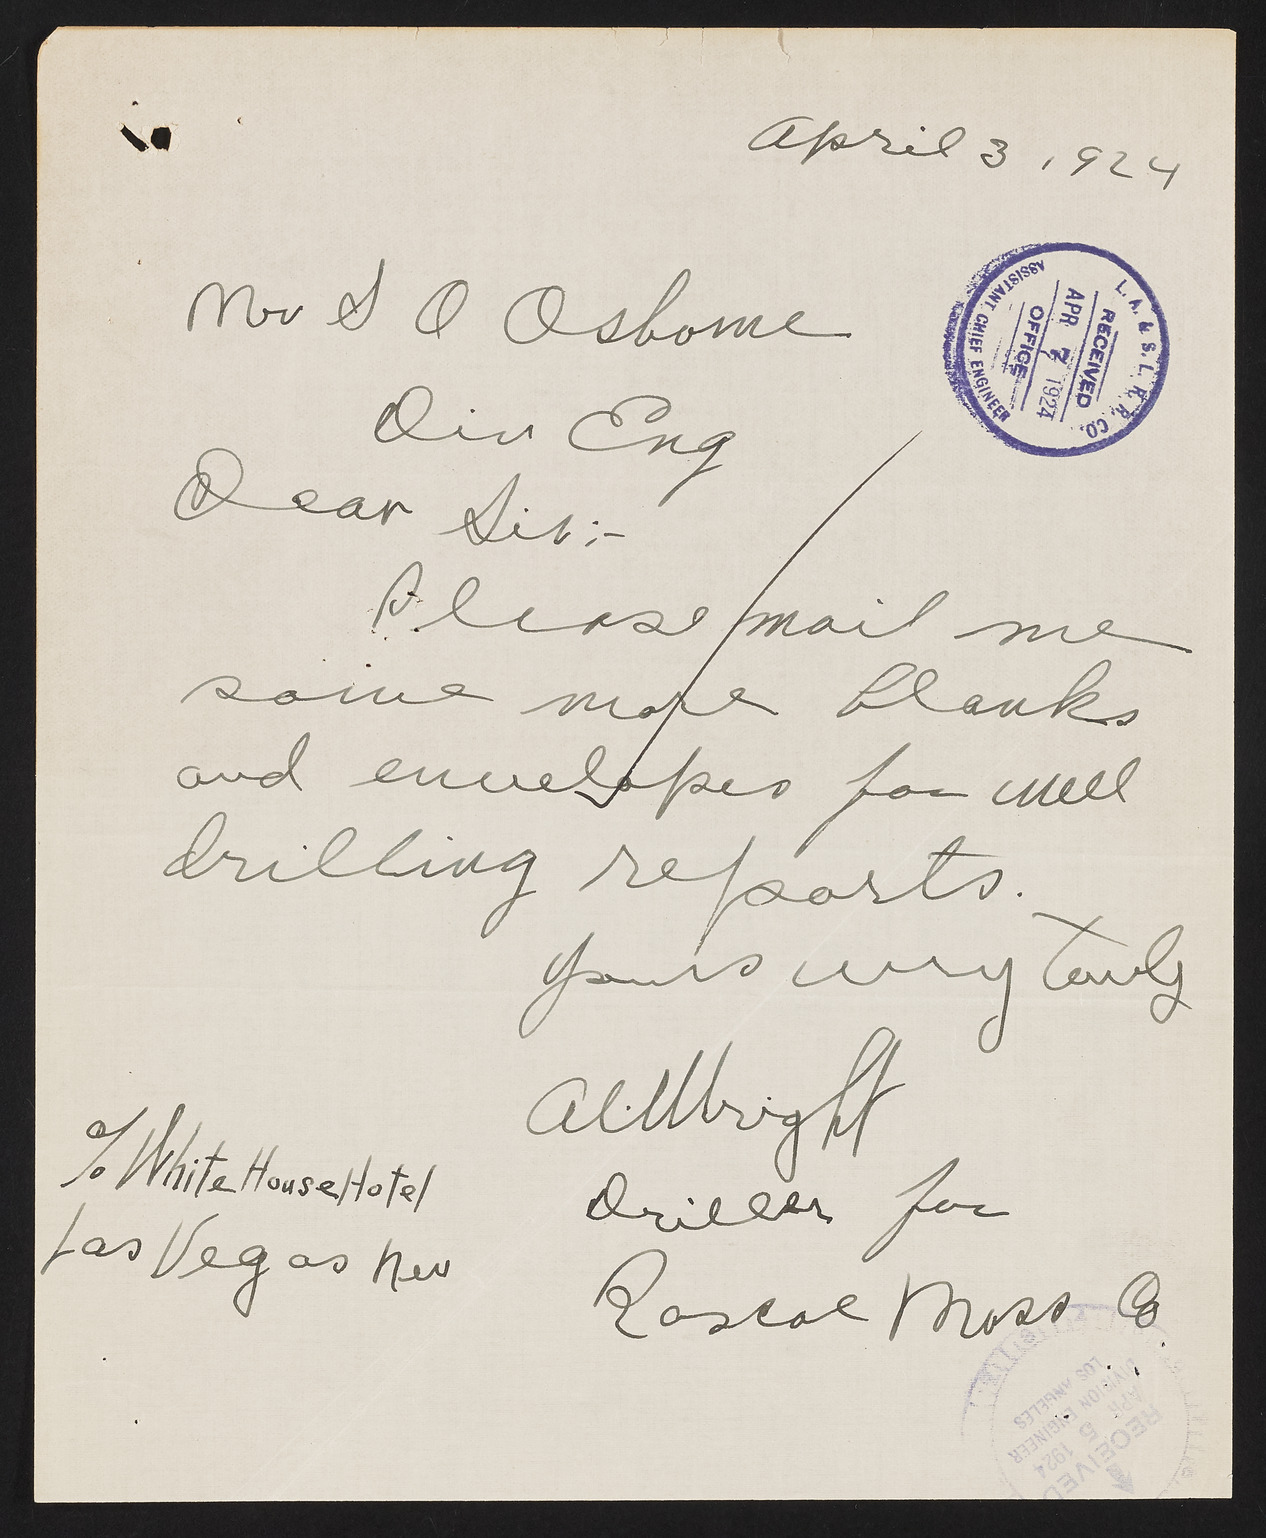 April 3, 1924
L. A. & S. L. R. R. CO.
RECEIVED
APR 7 1924
OFFICE
ASSISTANT CHIEF ENGINEER
Mr S O Osborne
Div Eng
Dear Sir:-
Please mail me
some more blanks
and envelopes for well
drilling reports.
Yours very truly
Al. Wright
Driller for
Roscoe Moss Co
c/o White House Hotel
Las Vegas Nev
RECEIVED
APR 5 1924
DIVISION ENGINEER
LOS ANGELES